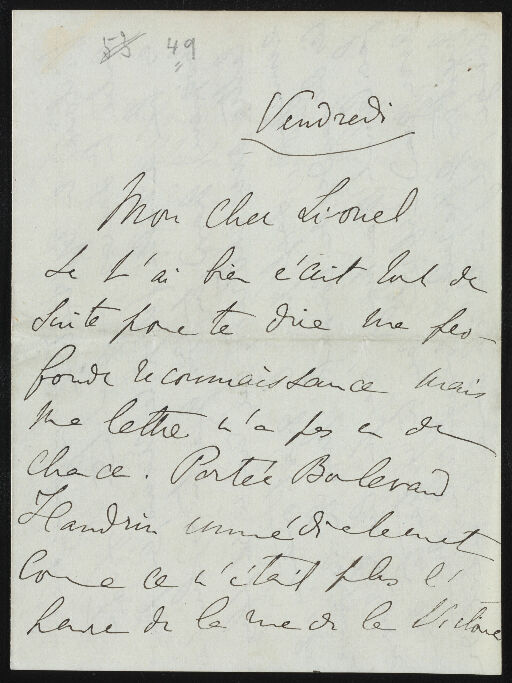 53 49
Vendredi
Mon cher Lionel
Je t'ai bien écrit tout de
suite pour te dire ma pro-
fonde reconnaissance mais
ma lettre n'a pas eu de
chance. Portée Boulevard
immédiatement
comme ce n'était plus l'
heure de la rue de la Victoire